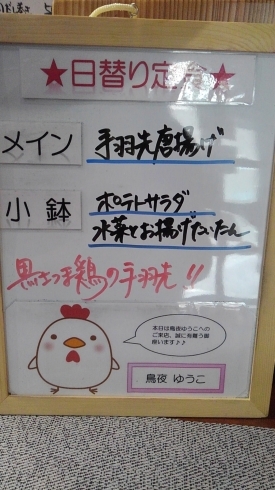 ★日替り定食★
メイン
手羽先唐揚げ
小鉢
ポテトサラダ
水菜とお揚げたいたん
黒さつま鶏の手羽先!!
本日は鳥夜ゆうこへの
ご来店、誠に有難う御
座います♪♪
鳥夜 ゆうこ